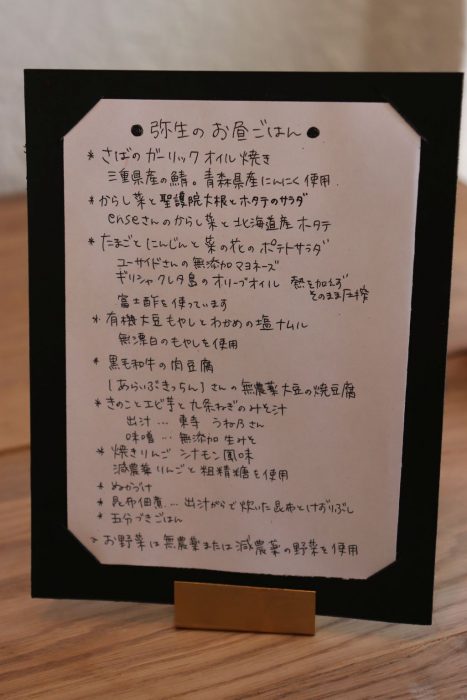 ● 弥生の お昼ごはん ●
* さばの ガーリック オイル 焼き
三重県産の鯖。青森県産にんにく 使用
* からし菜と聖護院大根とホタテのサラダ
enseさんのからし菜と北海道産ホタテ
* たまごとにんじんと菜の花のポテトサラダ
ユーサイドさんの無添加マヨネーズ
ギリシャクレタ島のオリーブオイル 熱を加えず
そのまま圧搾
富士酢を使っています
* 有機大豆もやしとわかめの塩ナムル
無漂白のもやしを使用
* 黒毛和牛の肉豆腐
[あらいぶきっちん]さんの無農薬大豆の焼豆腐
* きのことエビ芋と九条ねぎのみそ汁
出汁 … 東寺 うね乃さん
味噌 … 無添加 生みそ
* 焼きりんご シナモン風味
減農薬りんごと粗精糖を使用
* ぬかづけ
* 昆布佃煮 … 出汁がらで炊いた昆布とけずりぶし
* 五分づきごはん
* お野菜は無農薬または減農薬の野菜を使用